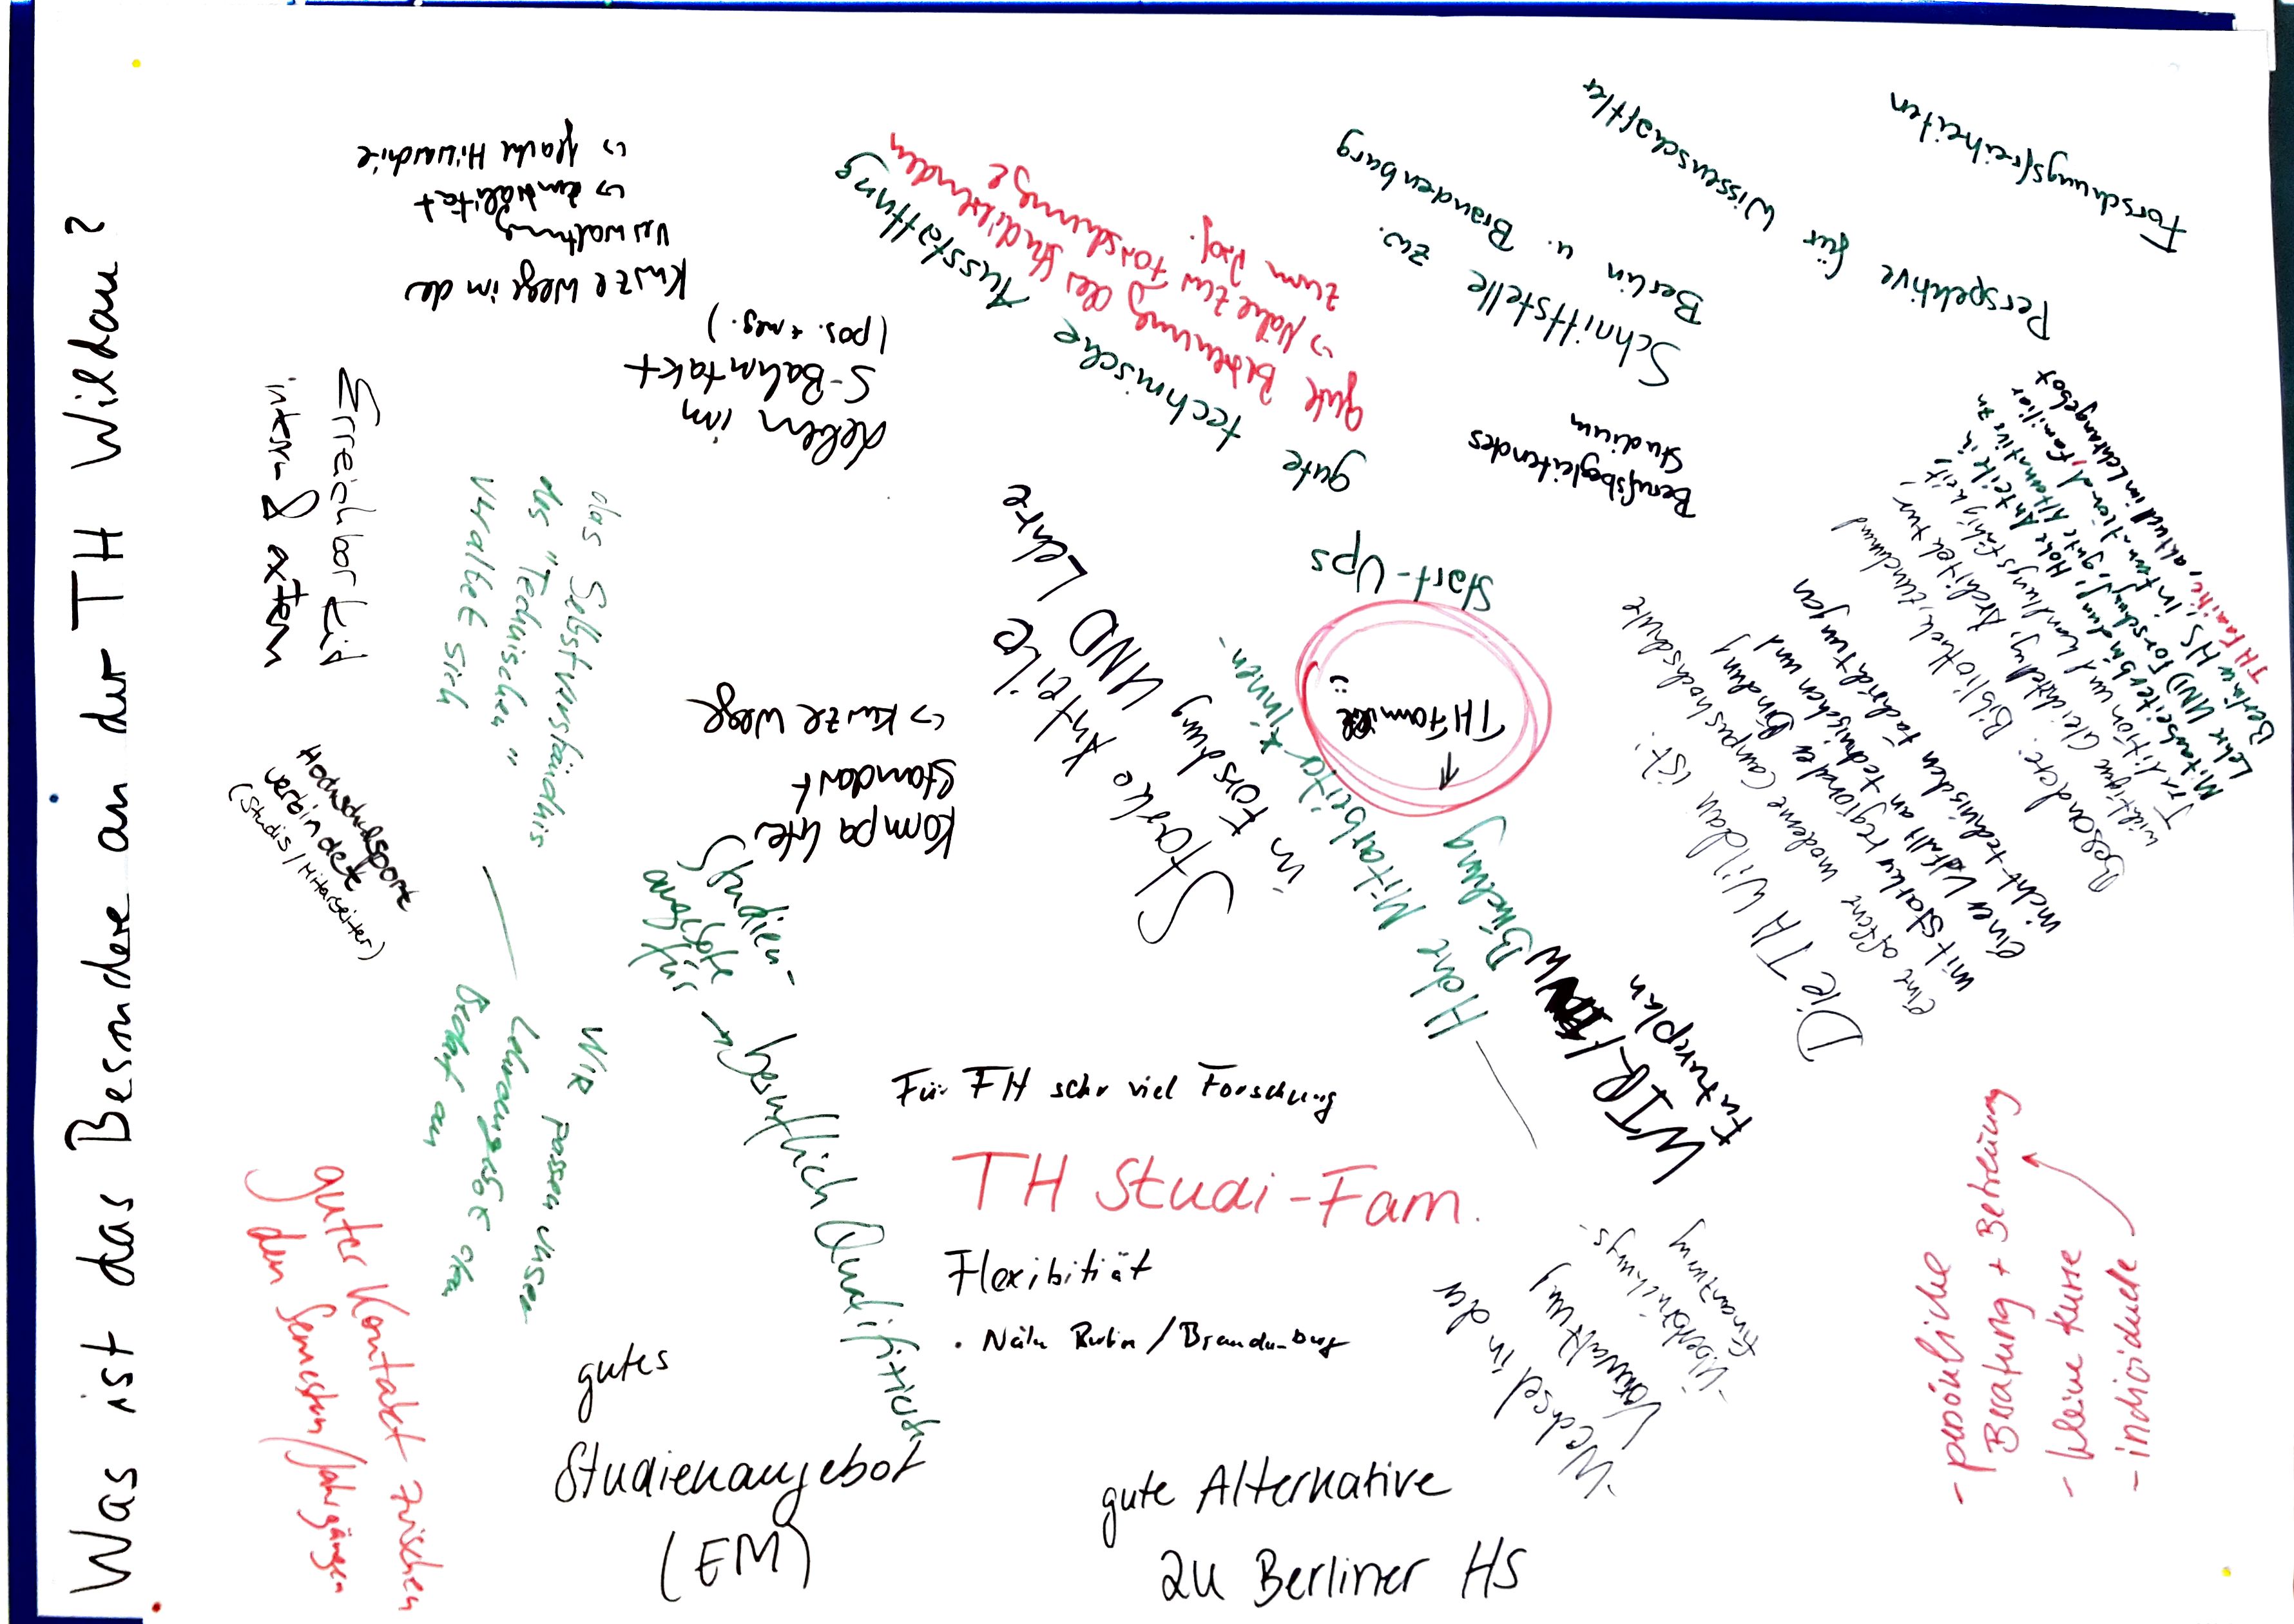 Was ist das Besondere an der TH Wildau?
Erreichbarkeit
intern & extern
Kurze Wege in de
Verwaltung
↳ Emotalität
↳ flache Hierarchie
Leben im
S-Bahntakt
(pos. + neg.)
gute technische Ausstattung
gute Betreuung des Studierenden
↳ Nähe zur Forschung
zum Prof.
Schnittstelle zw.
Berlin u. Brandenburg
Perspektive für Wissenschaftler
Forschungsfreiheiten
Berufsbegleitendes
Studium
Start-Ups
TH Familie
Starke Anteile
in Forschung
UND Lehre
Hohe Mitarbeiter*innen-
Bindung
das Selbstverständnis
des "Technischen"
verändert sich
Kompaktes
Standort
↳ kurze Wege
Hochschulsport
verbindet
(Studis / Mitarbeiter)
Studien-
angebote
für
→ beruflich Qualifizierte
Wir passen unser
Lehrangebot dem
Bedarf an
guter Kontakt zwischen
den Semestern/Jahrgängen
Für FH sehr viel Forschung
TH Studi-Fam.
Flexibität
• Nähe Berlin/Brandenburg
gutes
Studienangebot
(EM)
gute Alternative
zu Berliner HS
WIR!
Futureplan
- Wechsel in der
Verwaltung
- Überbrückungs-
finanzierung
Die TH Wildau ist:
eine offene moderne Campushochschule
mit starker regionaler Bindung
einer Vielfalt an technischen und
nicht-technischen Fachrichtungen
Besondere: Bibliothek,
Tradition und Wandlungsfähigkeit!
Mitarbeiterbindung, Hohe Anteile in
Lehre UND Forschung, gute Alternative zu
Berliner HS, international, familiär
TH Familie, aktuell im Lehrangebot
- persönliche
Beratung + Betreuung
- kleine Kurse
- individuelle